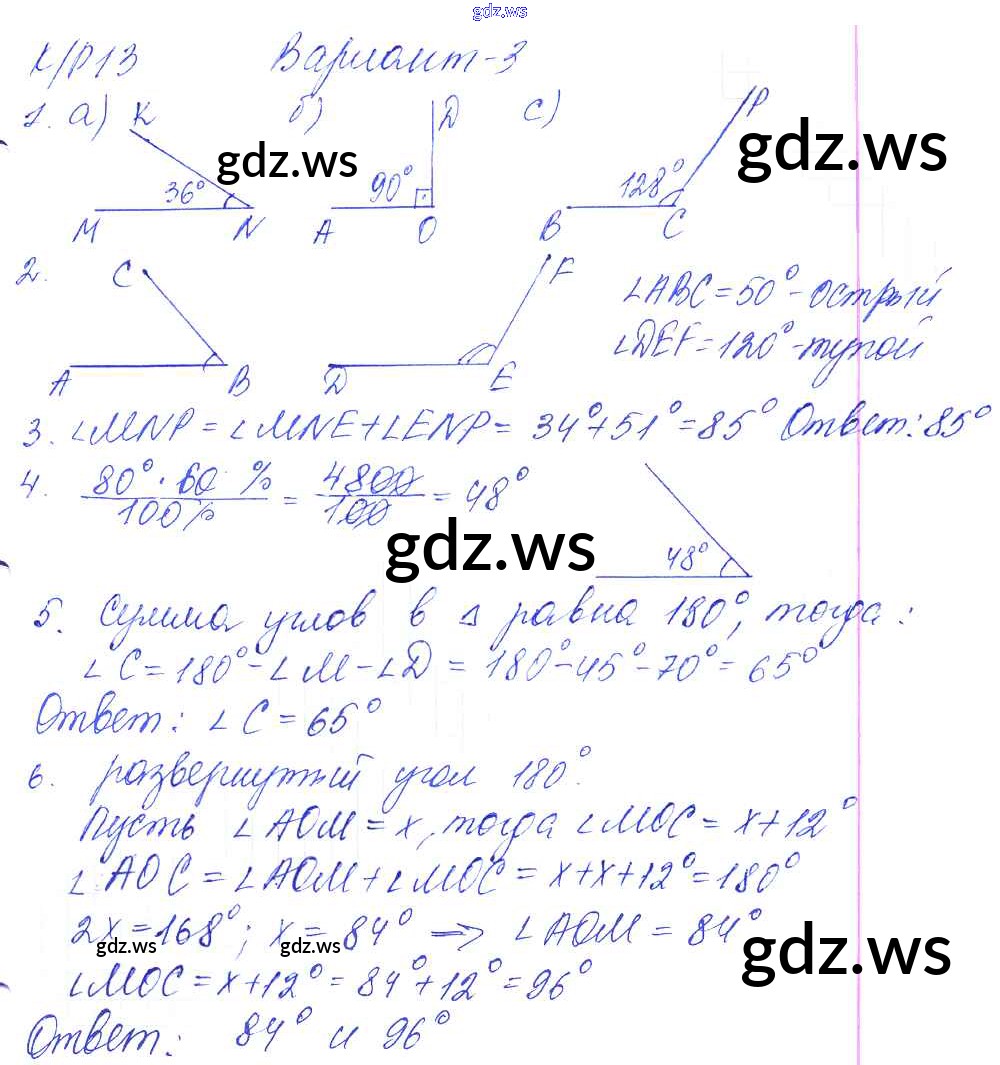 gdz.ws
К/Р13 Вариант-3
1. а) K б) D с) P
gdz.ws gdz.ws
36° 90° 128°
M N A O B C
2. C F
∠ABC = 50° - острый
∠DEF = 120° - тупой
A B D E
3. ∠MNP = ∠MNE + ∠ENP = 34° + 51° = 85° Ответ: 85°
4. 80° · 60 % / 100% = 4800 / 100 = 48°
gdz.ws 48°
5. Сумма углов в △ равна 180°, тогда:
∠C = 180° - ∠M - ∠D = 180° - 45° - 70° = 65°
Ответ: ∠C = 65°
6. развернутый угол 180°.
Пусть ∠AOM = x, тогда ∠MOC = x + 12°
∠AOC = ∠AOM + ∠MOC = x + x + 12° = 180°
2x = 168°; x = 84° => ∠AOM = 84°
gdz.ws gdz.ws gdz.ws
∠MOC = x + 12° = 84° + 12° = 96°
Ответ: 84° и 96°